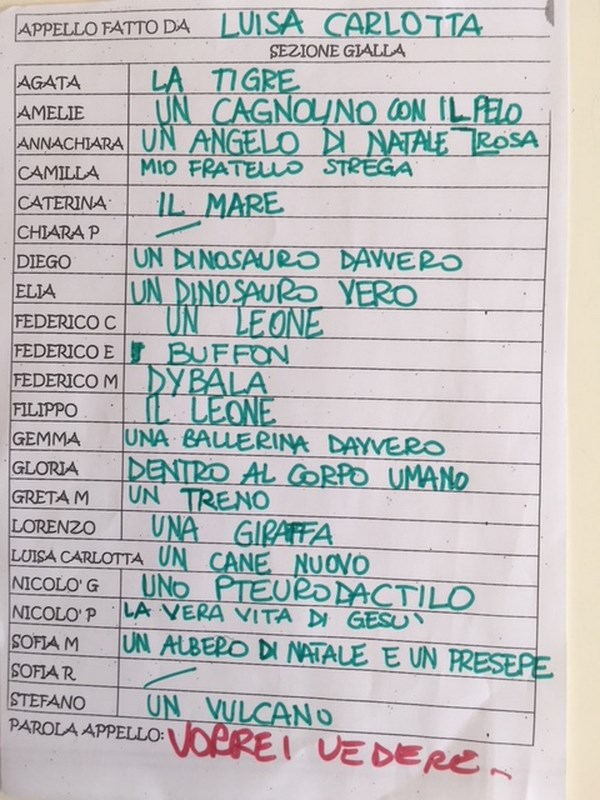 APPELLO FATTO DA LUISA CARLOTTA
SEZIONE GIALLA
AGATA LA TIGRE
AMELIE UN CAGNOLINO CON IL PELO ROSA
ANNACHIARA UN ANGELO DI NATALE
CAMILLA MIO FRATELLO STREGA
CATERINA IL MARE
CHIARA P —
DIEGO UN DINOSAURO DAVVERO
ELIA UN DINOSAURO VERO
FEDERICO C UN LEONE
FEDERICO E BUFFON
FEDERICO M DYBALA
FILIPPO IL LEONE
GEMMA UNA BALLERINA DAVVERO
GLORIA DENTRO AL CORPO UMANO
GRETA M UN TRENO
LORENZO UNA GIRAFFA
LUISA CARLOTTA UN CANE NUOVO
NICOLO' G UNO PTEURODACTILO
NICOLO' P LA VERA VITA DI GESU'
SOFIA M UN ALBERO DI NATALE E UN PRESEPE
SOFIA R —
STEFANO UN VULCANO
PAROLA APPELLO: VORREI VEDERE...